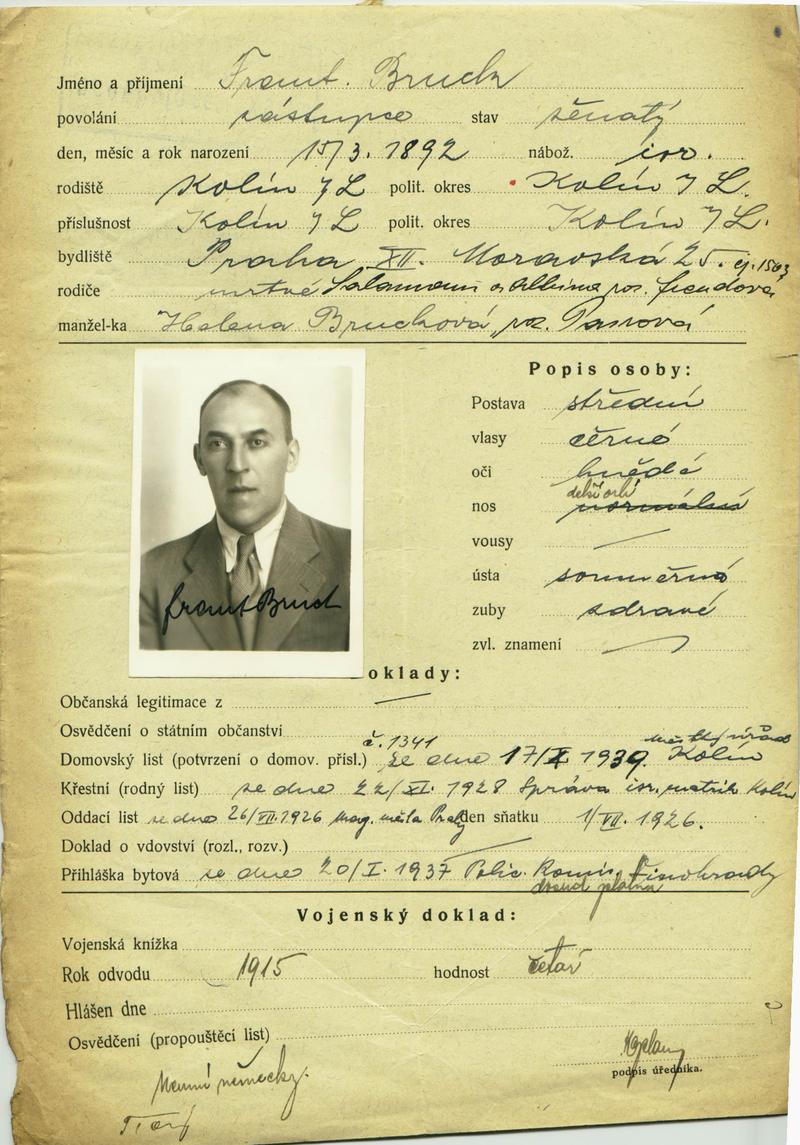 Jméno a příjmení Frant. Bruck
povolání zástupce stav ženatý
den, měsíc a rok narození 15/3. 1892 nábož. isr.
rodiště Kolín 7 L polit. okres Kolín 7 L.
příslušnost Kolín 7 L polit. okres Kolín 7 L.
bydliště Praha XII. Moravská 25. čj. 1503
rodiče mrtvé Salamoun a Albina roz.
manžel-ka Helena Brucková, roz.
Popis osoby:
Postava střední
vlasy černé
oči hnědé
delší orlí
nos normální
vousy
ústa souměrná
zuby zdravé
zvl. znamení
Frant Bruck
oklady:
Občanská legitimace z
Osvědčení o státním občanství
č. 1341 úřad
Domovský list (potvrzení o domov. přísl.) ze dne 17/X 1939. Kolín
Křestní (rodný list) ze dne 22/XI. 1928 Správa isr. matrik Kolín
Oddací list ze dne 26/VII. 1926 mag. města Prahy den sňatku 1/VII. 1926.
Doklad o vdovství (rozl., rozv.)
Přihláška bytová ze dne 20/I. 1937 Polic. Komis. Vinohrady
dosud platná
Vojenský doklad:
Vojenská knížka
Rok odvodu 1915 hodnost četař
Hlášen dne
Osvědčení (propouštěcí list)
podpis úředníka.
Neumí německy.